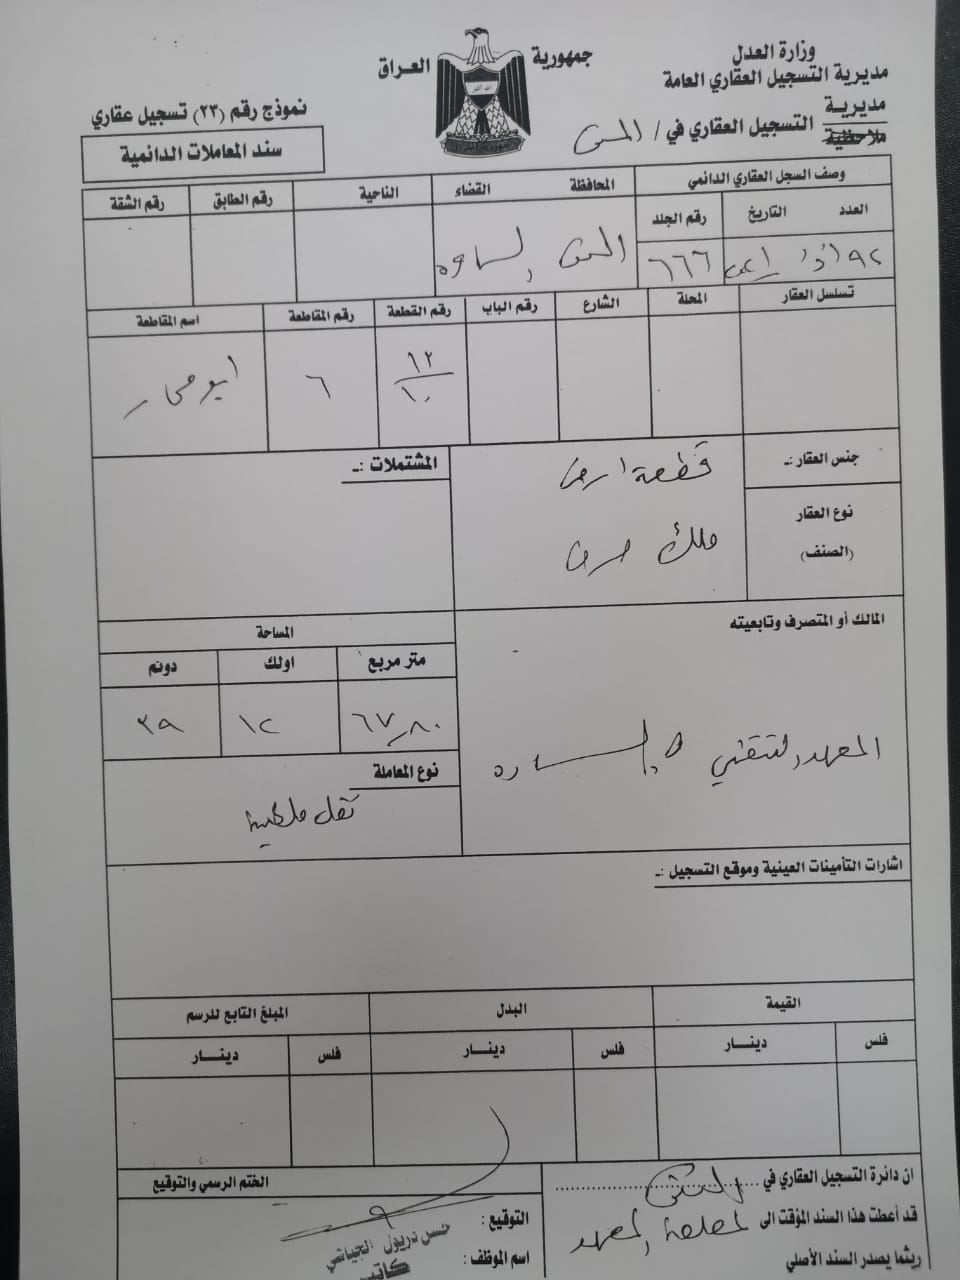 جمهورية العراق
وزارة العدل
مديرية التسجيل العقاري العامة
مديرية
ملاحظية
التسجيل العقاري في / المثنى
نموذج رقم (٢٣) تسجيل عقاري
سند المعاملات الدائمية
وصف السجل العقاري الدائمي
العدد التاريخ رقم الجلد
٩٢ ٦٦٦
المحافظة القضاء الناحية رقم الطابق رقم الشقة
المثنى السماوه
تسلسل العقار المحلة الشارع رقم الباب رقم القطعة رقم المقاطعة اسم المقاطعة
١٢/١٠ ٦ ابو محار
جنس العقار :ـ قطعة ارض
نوع العقار (الصنف) ملك صرف
المشتملات :ـ
المالك أو المتصرف وتابعيته
المعهد التقني / السماوه
المساحة
متر مربع اولك دونم
٦٧٫٨٠ ١٢ ٣٩
نوع المعاملة
نقل ملكية
اشارات التأمينات العينية وموقع التسجيل :ـ
القيمة البدل المبلغ التابع للرسم
فلس دينـــار فلس دينـــار فلس دينـــار
ان دائرة التسجيل العقاري في المثنى
قد أعطت هذا السند المؤقت الى لمصلحة المعهد
ريثما يصدر السند الأصلي
الختم الرسمي والتوقيع
التوقيع :
اسم الموظف :
حسن دريول الجياشي
كاتب